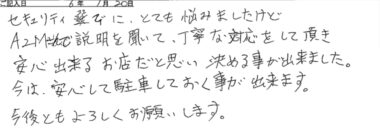 ご記入日 6年 1月20日
セキュリティ選びに、とても悩みましたけど
A2Mさんで説明を聞いて、丁寧な対応をして頂き
安心出来るお店だと思い決める事が出来ました。
今は、安心して駐車しておく事が出来ます。
今後ともよろしくお願いします。